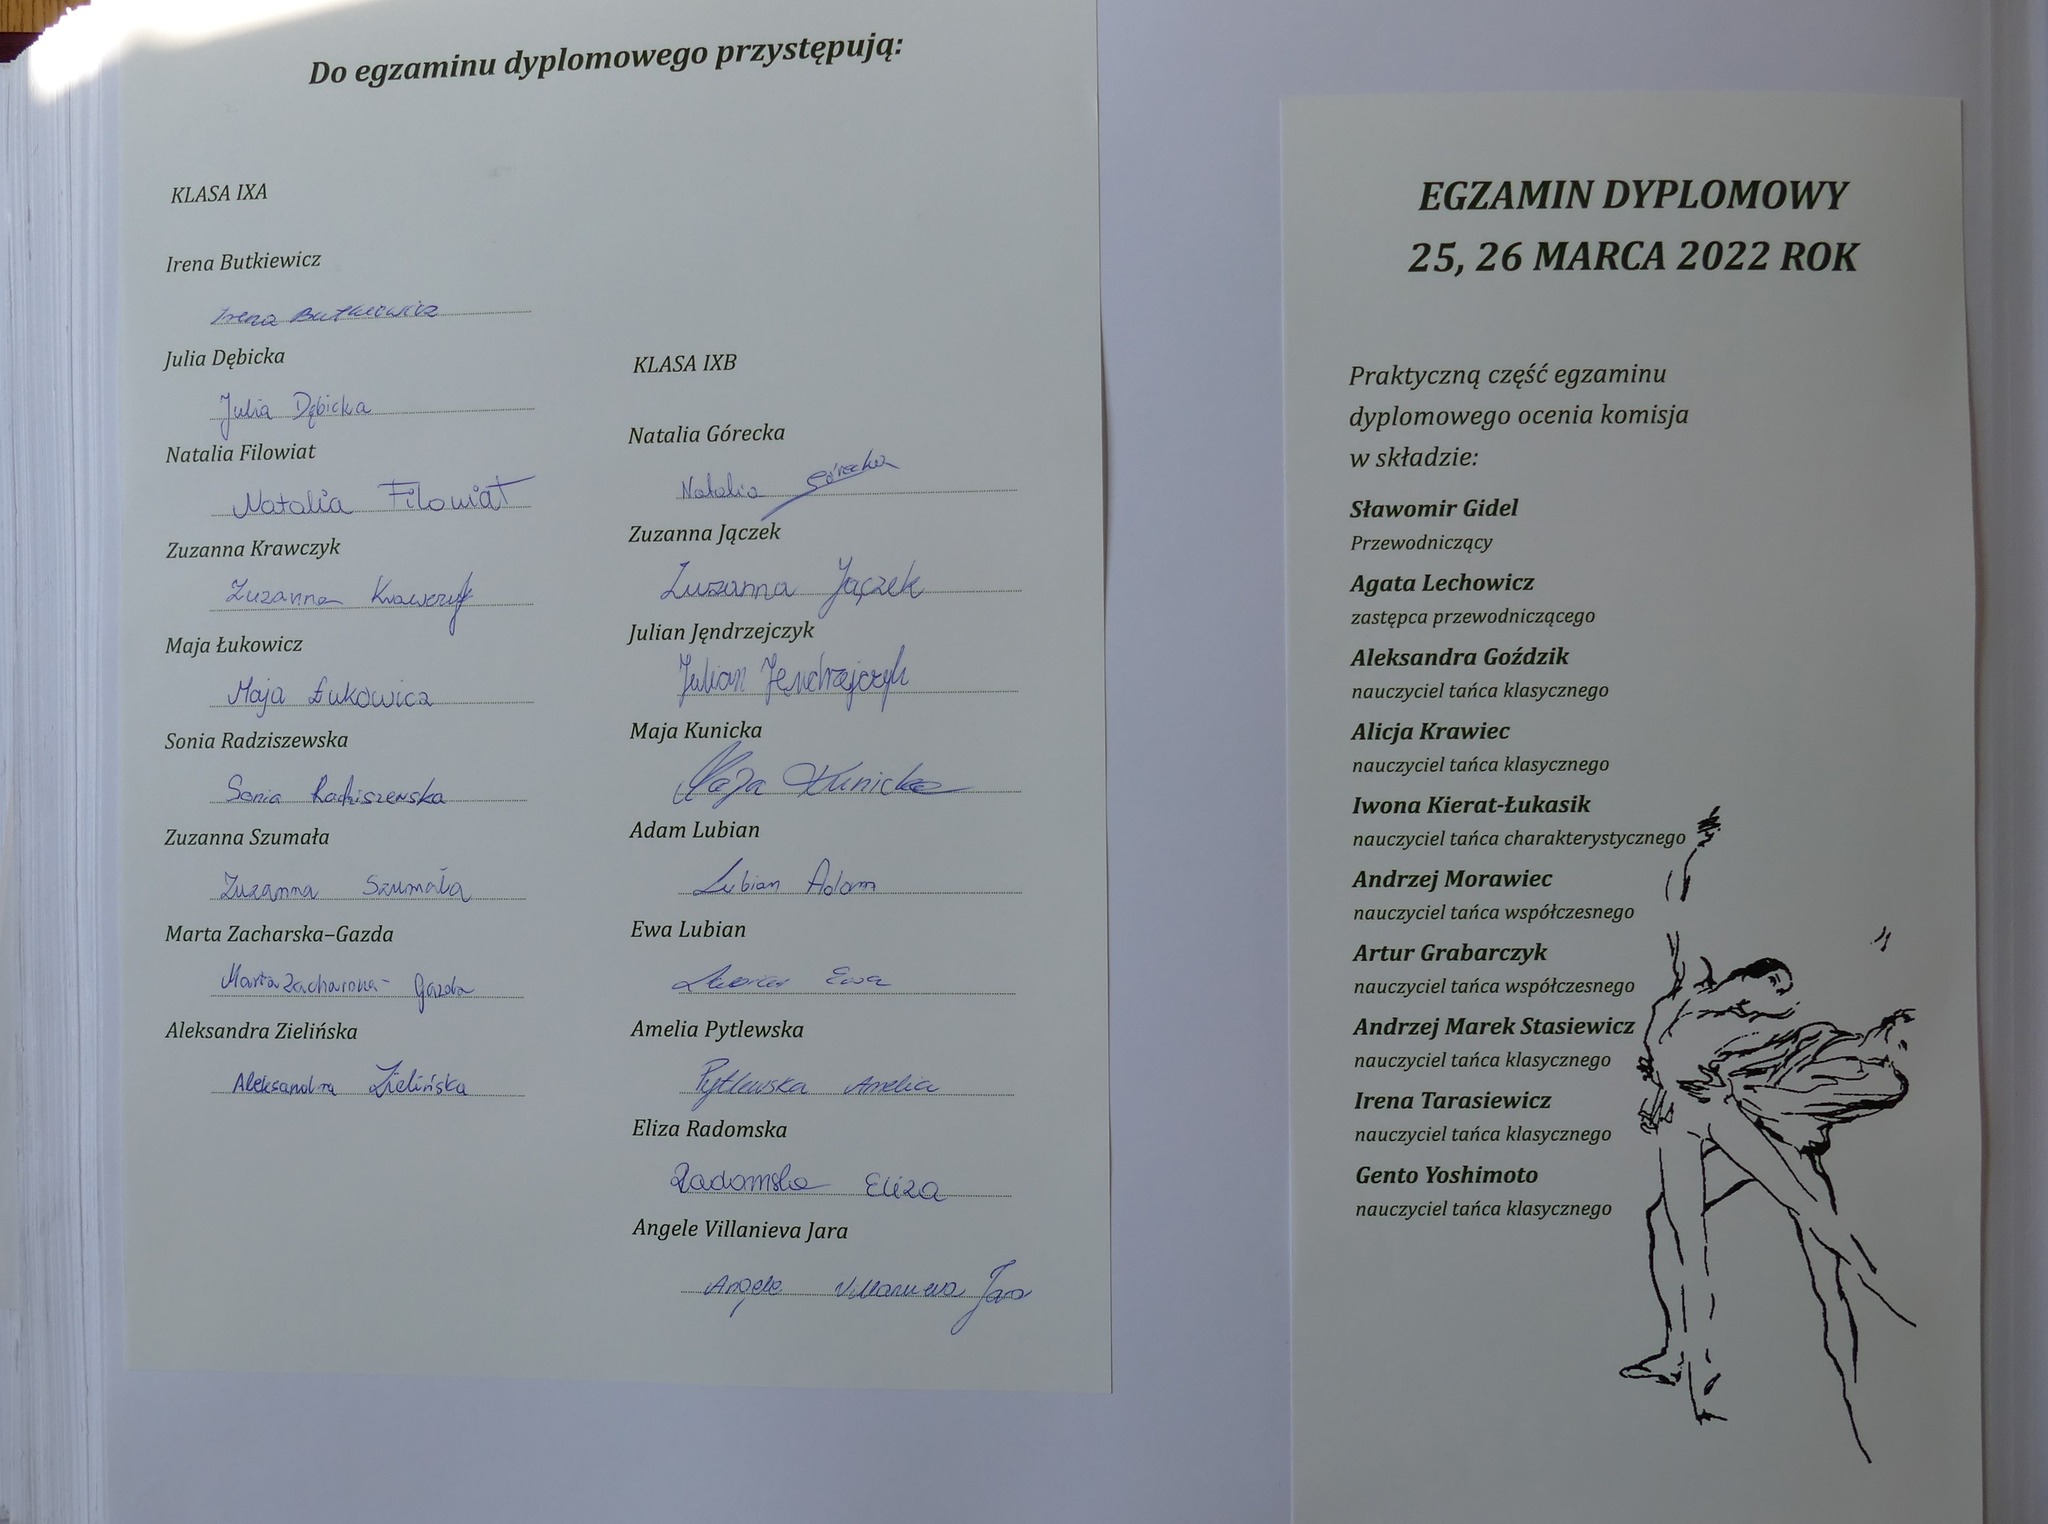 Do egzaminu dyplomowego przystępują:
KLASA IXA
Irena Butkiewicz
Irena Butkiewicz
Julia Dębicka
Julia Dębicka
Natalia Filowiat
Natalia Filowiat
Zuzanna Krawczyk
Zuzanna Krawczyk
Maja Łukowicz
Maja Łukowicz
Sonia Radziszewska
Sonia Radziszewska
Zuzanna Szumała
Zuzanna Szumała
Marta Zacharska–Gazda
Marta Zacharska- Gazda
Aleksandra Zielińska
Aleksandra Zielińska
KLASA IXB
Natalia Górecka
Natalia Górecka
Zuzanna Jączek
Zuzanna Jączek
Julian Jęndrzejczyk
Julian Jendrzejczyk
Maja Kunicka
Maja Kunicka
Adam Lubian
Lubian Adam
Ewa Lubian
Lubian Ewa
Amelia Pytlewska
Pytlewska Amelia
Eliza Radomska
Radomska Eliza
Angele Villanieva Jara
Angele Villanueva Jara
EGZAMIN DYPLOMOWY
25, 26 MARCA 2022 ROK
Praktyczną część egzaminu
dyplomowego ocenia komisja
w składzie:
Sławomir Gidel
Przewodniczący
Agata Lechowicz
zastępca przewodniczącego
Aleksandra Goździk
nauczyciel tańca klasycznego
Alicja Krawiec
nauczyciel tańca klasycznego
Iwona Kierat-Łukasik
nauczyciel tańca charakterystycznego
Andrzej Morawiec
nauczyciel tańca współczesnego
Artur Grabarczyk
nauczyciel tańca współczesnego
Andrzej Marek Stasiewicz
nauczyciel tańca klasycznego
Irena Tarasiewicz
nauczyciel tańca klasycznego
Gento Yoshimoto
nauczyciel tańca klasycznego